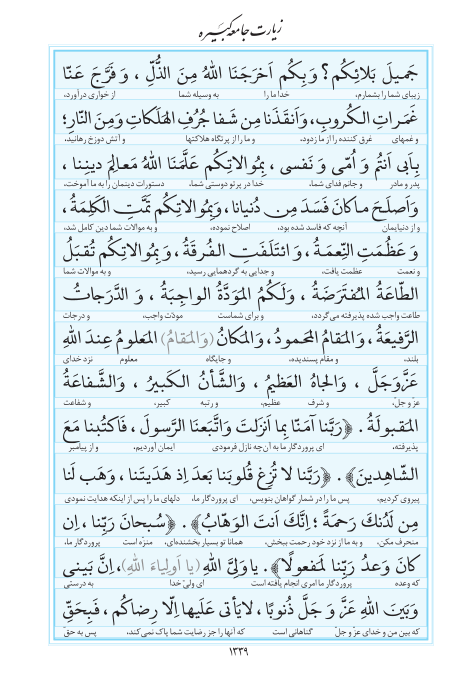 زیارت جامعه کبیره
جَميلَ بَلائِكُم؟ وَبِكُم اَخرَجَنَا اللّٰهُ مِنَ الذُّلِّ ، وَ فَرَّجَ عَنّا
زیبای شما را بشمارم، خدا ما را به وسیله شما از خواری درآورد،
غَمَراتِ الكُروبِ، وَاَنقَذَنا مِن شَفا جُرُفِ الهَلَكاتِ وَمِنَ النّارِ؛
و غمهای غرق کننده را از ما زدود، و ما را از پرتگاه هلاکتها و آتش دوزخ رهانید،
بِاَبی اَنتُم وَ اُمّی وَ نَفسی ، بِمُوالاتِكُم عَلَّمَنَا اللّٰهُ مَعالِمَ دینِنا ،
پدر و مادر و جانم فدای شما، خدا در پرتو دوستی شما، دستورات دینمان را به ما آموخت،
وَاَصلَحَ ما كانَ فَسَدَ مِن دُنیانا ، وَبِمُوالاتِكُم تَمَّتِ الكَلِمَةُ ،
و از دنیایمان آنچه که فاسد شده بود، اصلاح نموده، و به موالات شما دین کامل شد،
وَ عَظُمَتِ النِّعمَةُ ، وَ ائتَلَفَتِ الفُرقَةُ ، وَ بِمُوالاتِكُم تُقبَلُ
و نعمت عظمت یافت، و جدایی به گردهمایی رسید، و به موالات شما
الطّاعَةُ المُفتَرَضَةُ ، وَ لَكُمُ المَوَدَّةُ الواجِبَةُ ، وَ الدَّرَجاتُ
طاعت واجب شده پذیرفته می‌گردد، و برای شماست مودّت واجب، و درجات
الرَّفیعَةُ ، وَالمَقامُ المَحمودُ ، وَالمَكانُ (وَالمَقامُ) المَعلومُ عِندَ اللّٰهِ
بلند، و مقام پسندیده، و جایگاه معلوم نزد خدای
عَزَّوَجَلَّ ، وَالجاهُ العَظیمُ ، وَالشَّأنُ الكَبیرُ ، وَالشَّفاعَةُ
عزّ و جلّ، و شرف عظیم، و رتبه کبیر، و شفاعت
المَقبولَةُ . ﴿رَبَّنا آمَنّا بِما اَنزَلتَ وَاتَّبَعنَا الرَّسولَ ، فَاكتُبنا مَعَ
پذیرفته، ای پروردگار ما به آن‌چه نازل فرمودی ایمان آوردیم، و از پیامبر
الشّاهِدینَ﴾ . ﴿رَبَّنا لا تُزِغ قُلوبَنا بَعدَ اِذ هَدَیتَنا ، وَهَب لَنا
پیروی کردیم، پس ما را در شمار گواهان بنویس، ای پروردگار ما، دلهای ما را پس از اینکه هدایت نمودی
مِن لَدُنكَ رَحمَةً ؛ اِنَّكَ اَنتَ الوَهّابُ﴾ . ﴿سُبحانَ رَبِّنا ، اِن
منحرف مکن، و به ما از نزد خود رحمت ببخش، همانا تو بسیار بخشنده‌ای، منزّه است پروردگار ما،
كانَ وَعدُ رَبِّنا لَمَفعولًا﴾. یا وَلِیَّ اللّٰهِ (یا اَولِیاءَ اللّٰهِ)، اِنَّ بَینی
که وعده پروردگار ما امری انجام یافته است ای ولیّ خدا به درستی
وَبَینَ اللّٰهِ عَزَّ وَ جَلَّ ذُنوبًا ، لا یَأتی عَلَیها اِلّا رِضاكُم ، فَبِحَقِّ
که بین من و خدای عزّ و جلّ گناهانی است که آنها را جز رضایت شما پاک نمی‌کند، پس به حقّ
١٣٣٩